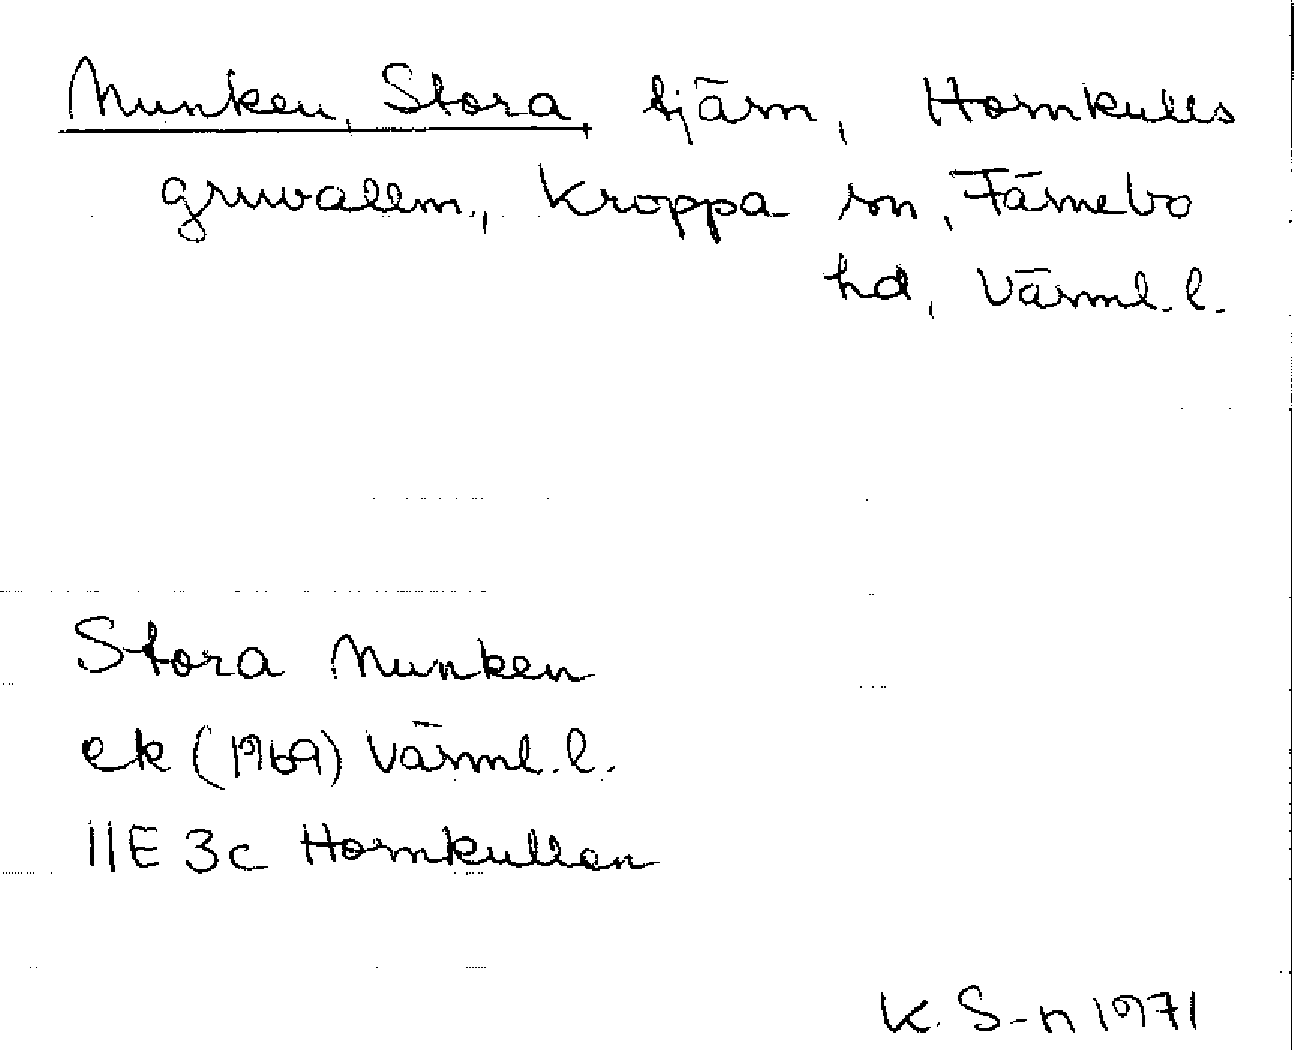 Munken, Stora, tjärn, Hornkulls
gruvallm., Kroppa sn, Färnebo
hd, Värml. l.
Stora Munken
ek (1969) Värml. l.
11E 3c Hornkullen
K. S-n 1971